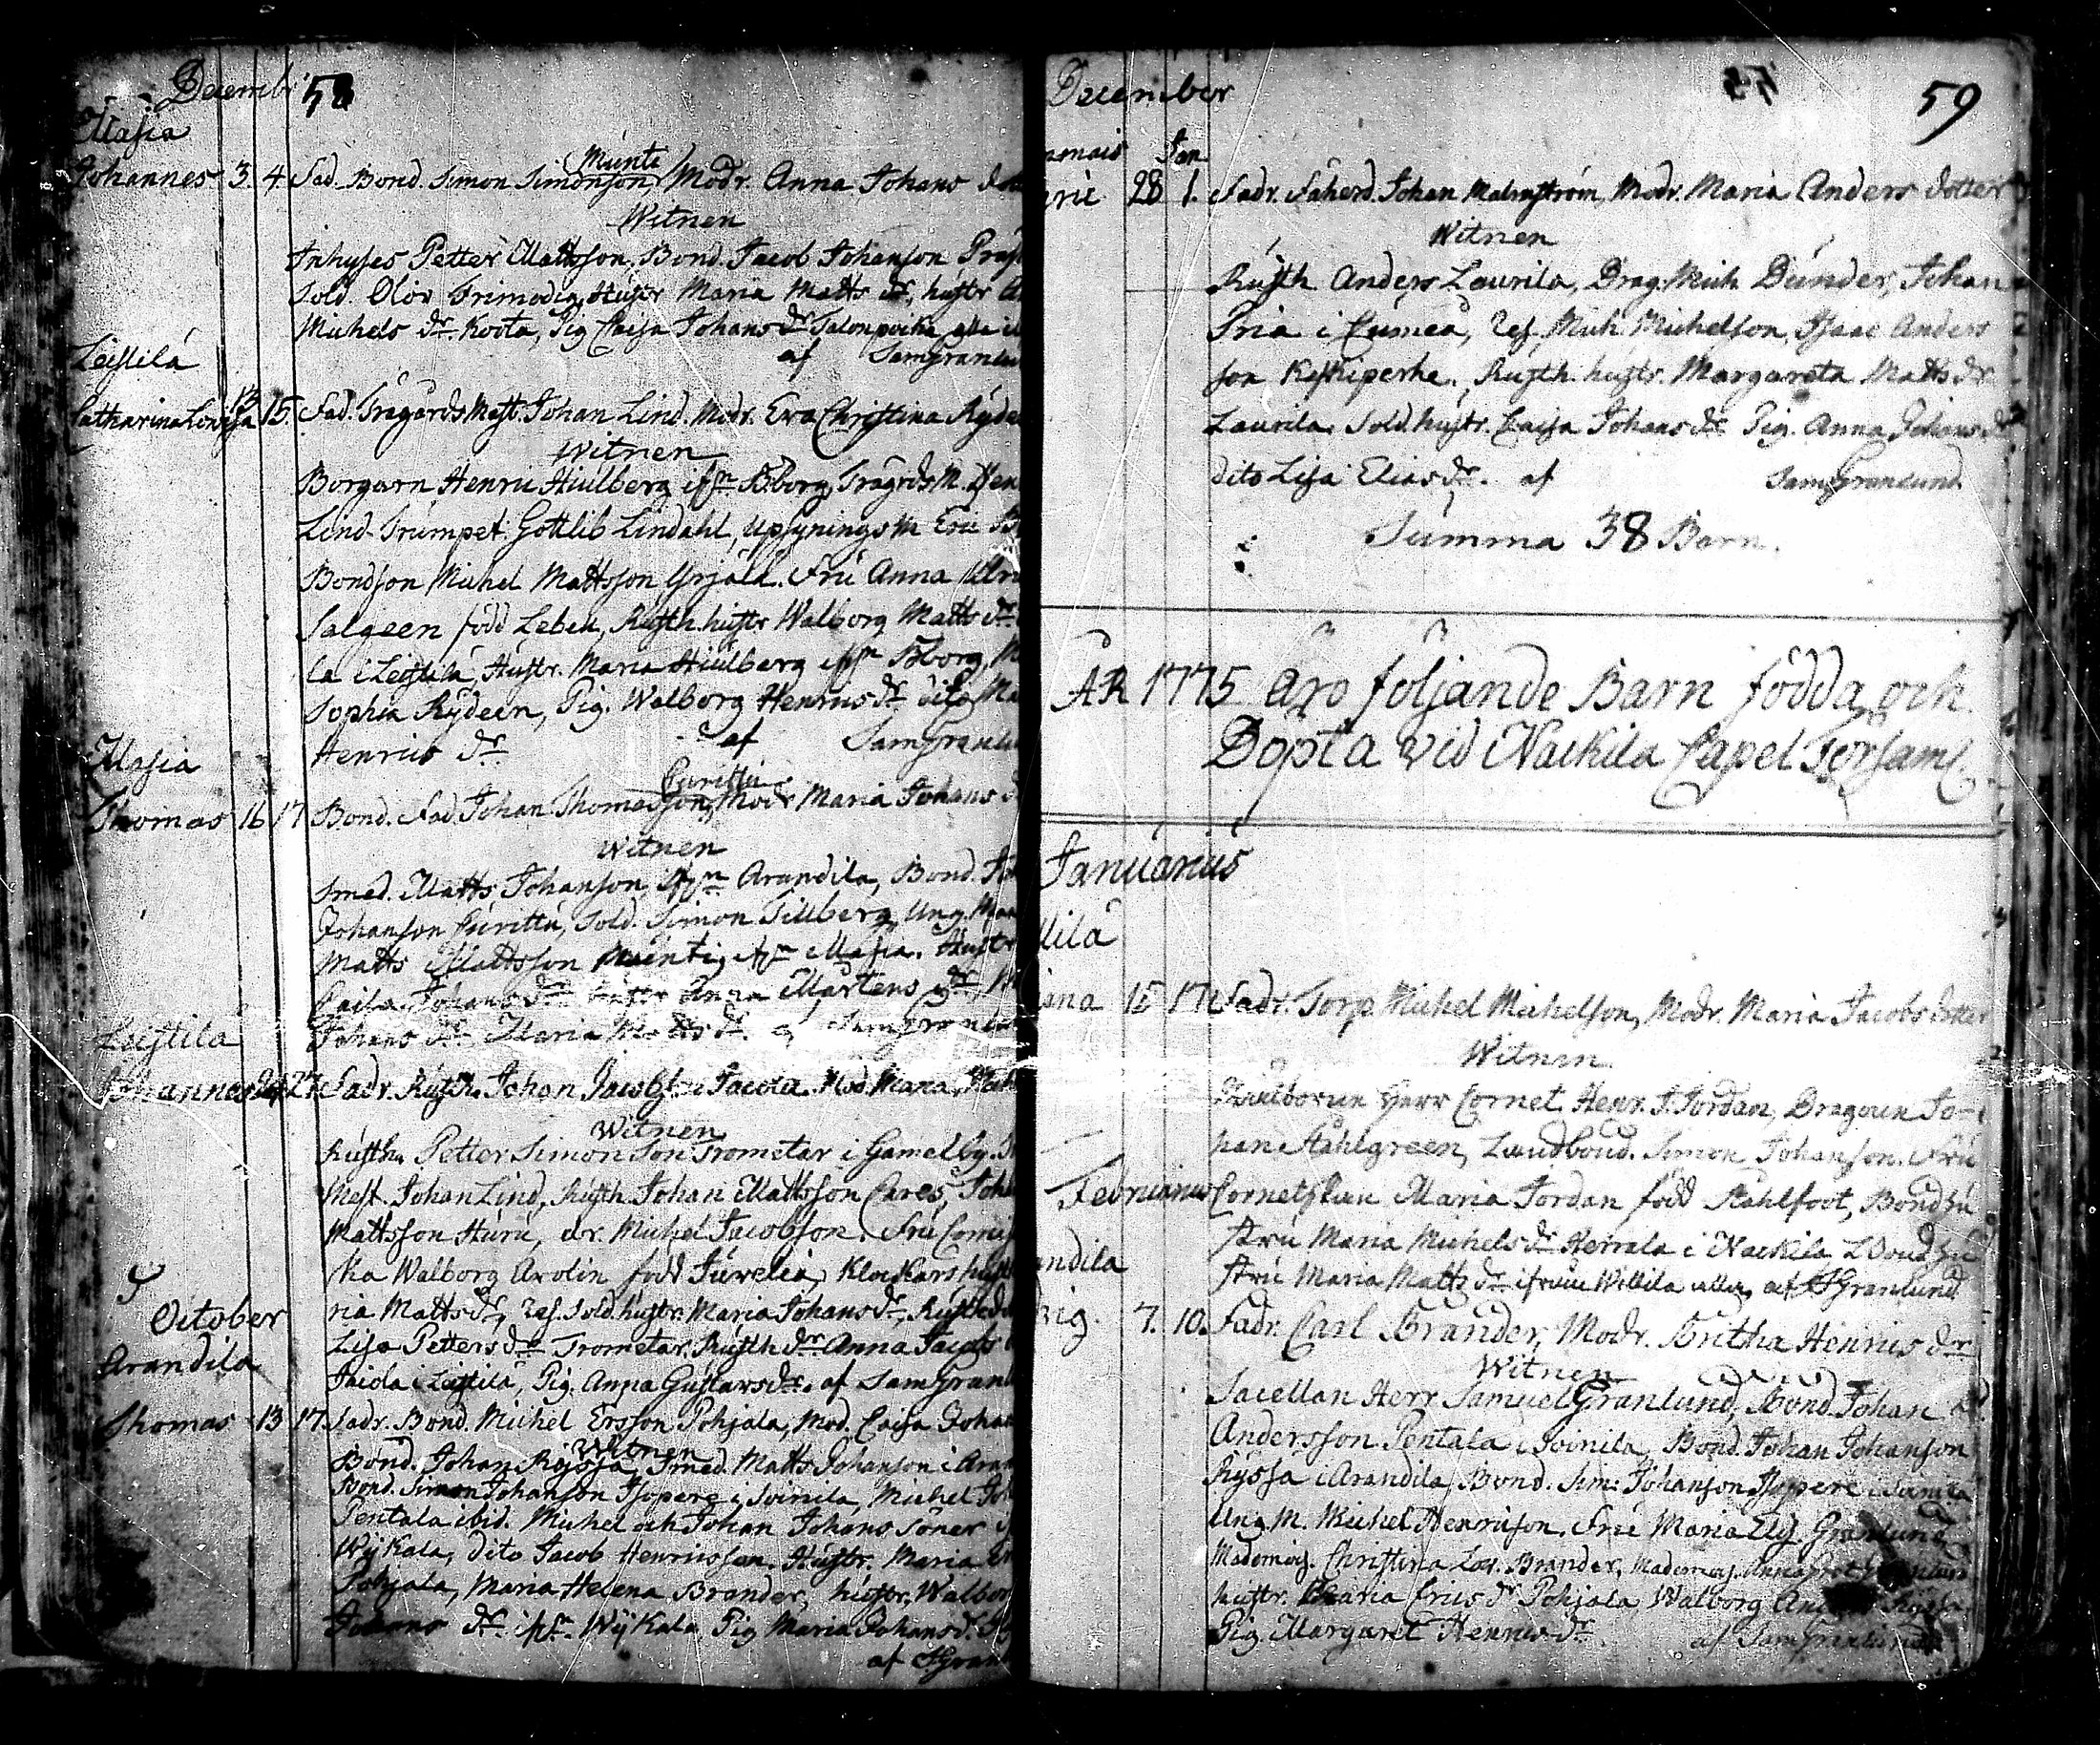 Decembr 58
Masia
Munta
Johannes 3. 4. Fad. Bond. Simon Simonson, Modr. Anna Johans
Witnen
Inhyses Petter Mattsson, Bond. Jacob Johanson
Sold. Olov Trimodig, Hustr Maria Matts dr, hustr
Michels dr Koota, Pig Caisa Johans dr
af SamGranlu
Leistilá
Catharina Lovisa 13 15. Fad. Trägårds Mest. Johan Lind. Modr. Eva Christina Ryde
Witnen
Borgarn Henric Hiulberg ifrn Bborg, Trägrds M. Hen
Lind. Trumpet. Gottlib Lindahl, Upsynings M Eric
Bondson Michel Mattsson Yrjälä. Fru Anna Ulri
Salgeen född Lebell, Rusth. hustr Walborg Matts dr
la i Leistilä, Hustr. Maria Hiulberg ifrn Bborg,
Sophia Rydeen, Pig. Walborg Henrics dr dito Ma
Henrics dr. af SamGranlu
Masia
Curittu
Thomas 16 17 Bond. Fad. Johan Thomasson, Modr Maria Johans d
Witnen
Smed. Matts Johanson, ifrn Arandila, Bond.
Johanson Curittu, Sold. Simon Tillberg, Ung. Man
Matts Mattsson Munti, ifrn Masia. Hustr
Caisa Johans dr Hustr Anna Mårtens dr
Johans dr Maria Matts dr. af SamGranlun
Leistila
Johannes 24 27. Fadr. Rusth. Johan Jacobs. Jaiola. Mod Maria
Witnen
Rusth. Petter Simon Son Trometar i Gamelby.
Mest. Johan Lind, Rusth. Johan Mattsson Cares, Joh
Mattsson Huru, dr. Michel Jacobson. Fru
ka Walborg Arolin född Juvelia, Klockars hustr
ria Matts dr, Res. Sold. hustr. Maria Johans dr,
Lisa Petters dr Trometar. Rusth dr Anna Jacobs
Jaiola i Leistilä, Pig. Anna Gustavs dr. af SamGranl
October
Arandila
Thomas 13 17. Fadr. Bond. Michel Ersson Pohjala, Mod. Caisa Joha
Witnen
Bond. Johan Röyssä, Smed. Matts Johanson i Aran
Bond. Simon Johanson Isopere i Soinila, Michel Joh
Pentala ibid. Michel och Johan Johans Söner i
Wyikala, dito Jacob Henricsson. Hustr. Maria
Pohjala, Maria Helena Brander, hustr. Walbor
Johans dr. ifrn. Wyikala Pig Maria Johans d.
af SGranl
December 59
Jan
ric 28 1. Fadr. Fäherd. Johan Malmström, Modr. Maria Anders dotter
Witnen
Rusth Anders Laurila, Drag. Mich Dunder, Johan
Pria i Cumea, Res. Mich Michelson, Isaac Anders
son Keskiperhe. Rusth. hustr. Margareta Matts dr
Laurila. Sold. hustr. Caisa Johans dr Pig. Anna Johans dr
dito Lisa Elias dr. af SamGranlund.
Summa 38 Barn.
ÅR 1775 äro följande Barn födda och
Döpta vid Nackila Capel Församl.
Januarius
llilä
iana 15 17. Fadr. Torp. Michel Michelson, Modr. Maria Jacobs dotter
Witnen
Wälborne Herr Cornet Henr. J. Jordan, Dragoun Jo-
han Stahlgreen, Landbond. Simon Johanson. Fru
Februarius Cornetskan Maria Jordan född Stahlfoot, Bondhu
stru Maria Michels dr Herrala i Nackila LBond hu
stru Maria Matts dr ifrån Willila alla. af SGranlund.
andila
ig. 7. 10. Fadr. Carl Brander, Modr. Britha Henrics dr
Witnen
Sacellan Herr Samuel Granlund, Bond Johan
Andersson Pentala i Soinila, Bond. Johan Johanson
Ryssa i Arandila, Bond. Sim: Johanson Isopere i Soinila
Ung. M. Michel Henricson. Fru Maria Elis. Granlund
Mademois. Christina Lov. Brander, Mademois. Anna
hustr. Maria Erics dr Pohjala, Walborg
Pig. Margaret Henrics dr. af SamGranlund